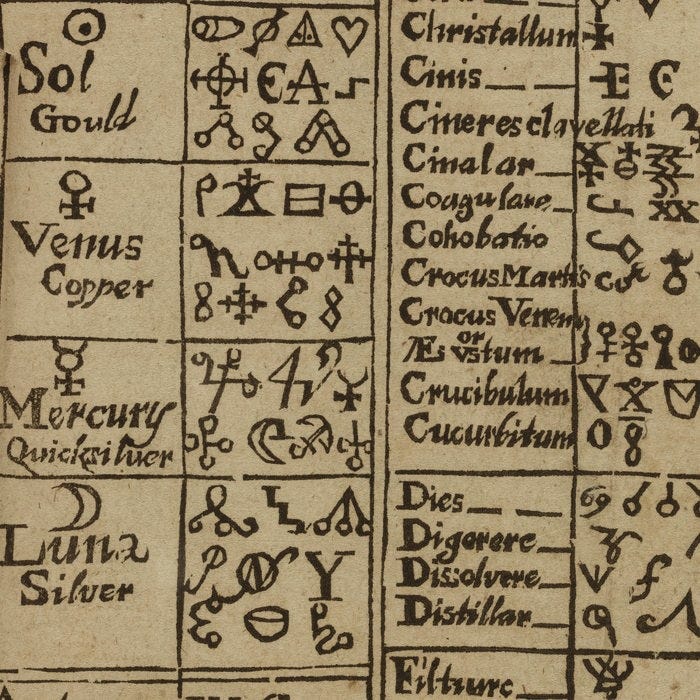 Sol
Gould
Venus
Copper
Mercury
Quicksilver
Luna
Silver
Christallum
Cinis
Cineres clavellati
Cinalar
Coagulare
Cohobatio
Crocus Martis
Crocus Veneris
or
Æs vstum
Crucibulum
Cucurbitum
Dies
Digerere
Dissolvere
Distillar
Filture